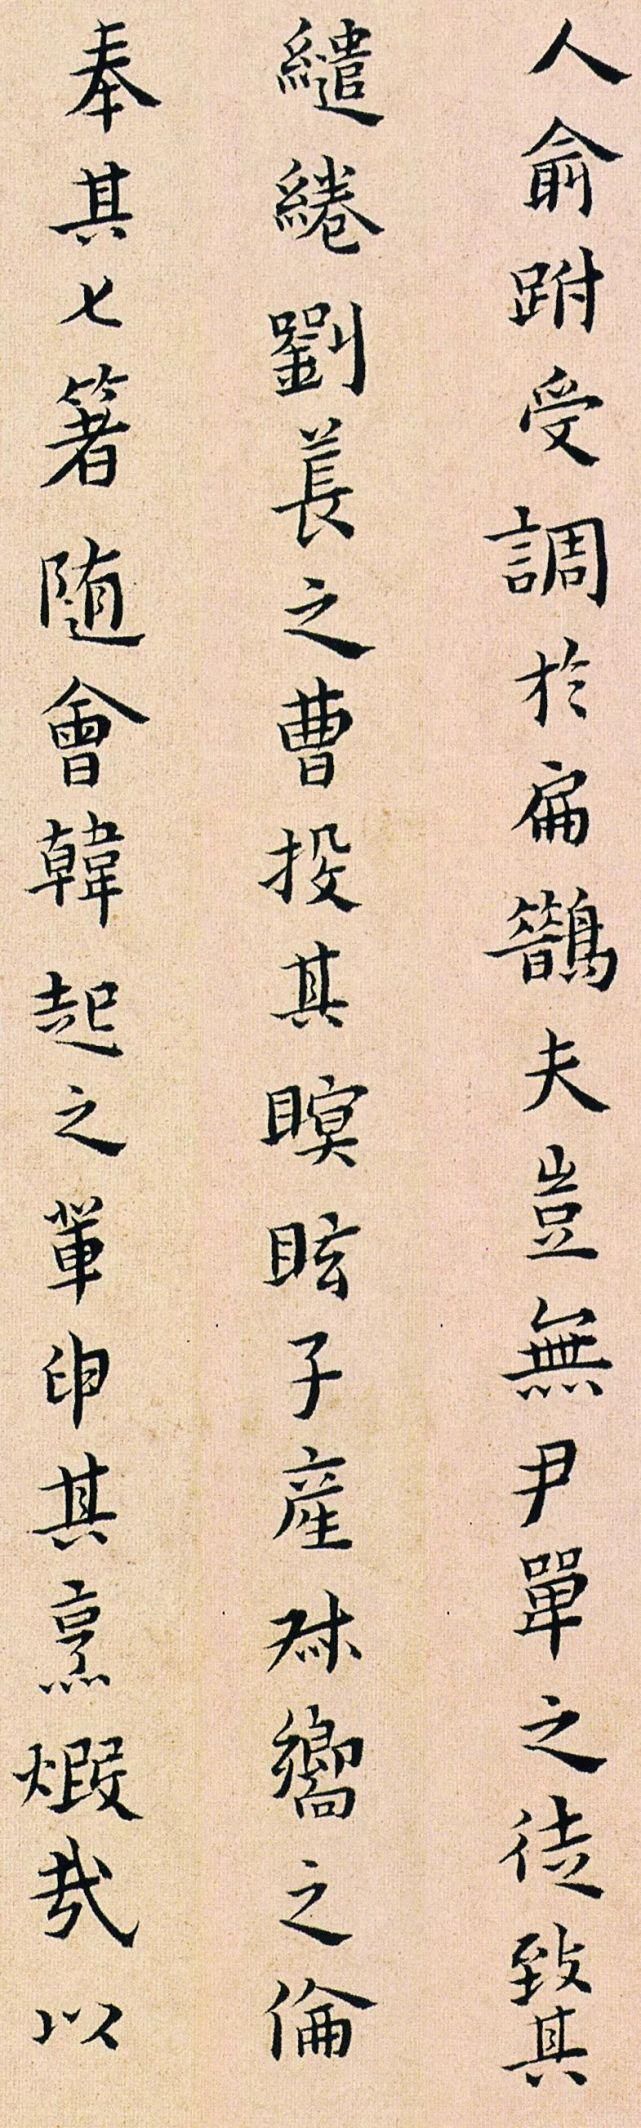 人俞跗受調於扁鵲夫豈無尹單之徒致其
繾綣劉萇之曹投其瞑眩子產叔嚮之倫
奉其匕箸随會韓起之輩申其烹煆哉以